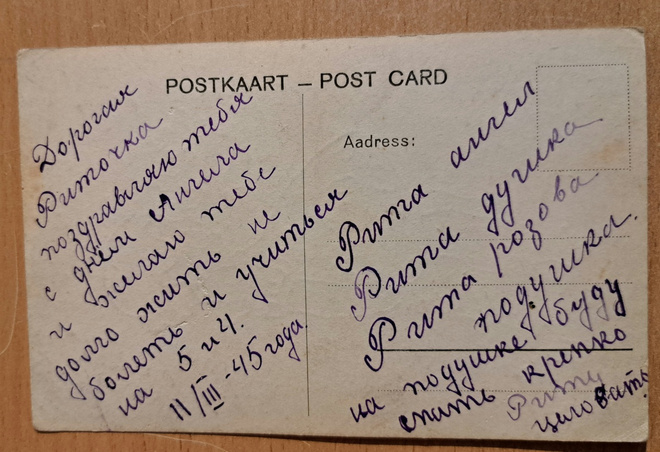 POSTKAART – POST CARD
Дорогая
Риточка
поздравляю тебя
с днём Ангела
и желаю тебе
долго жить не
болеть и учиться
на 5 и 4.
11/III-45 года.
Aadress:
Рита ангел
Рита душка
Рита розова
подушка.
на подушке буду
спать крепко
Риту
целовать.